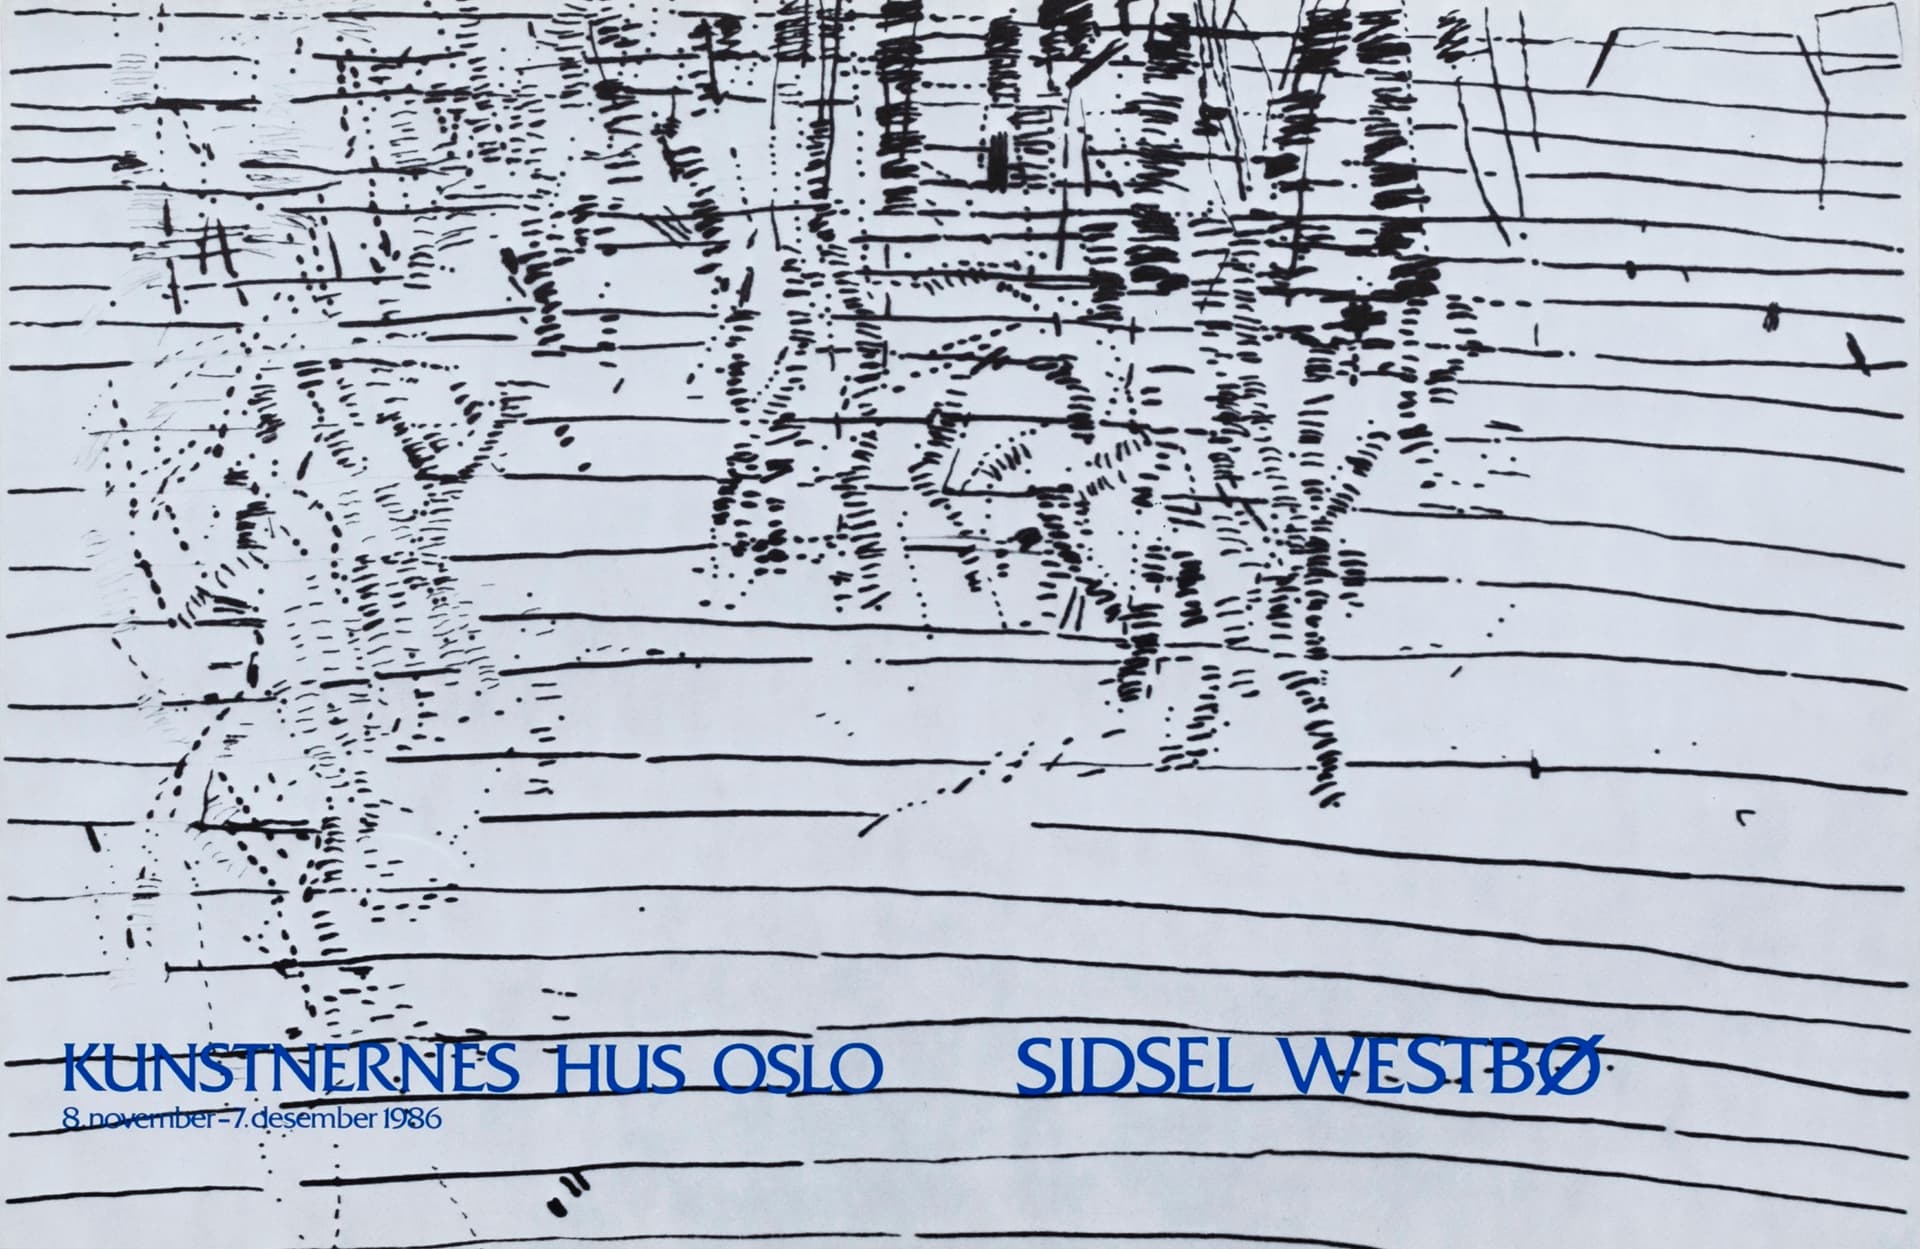 KUNSTNERNES HUS OSLO SIDSEL WESTBØ
8. november–7. desember 1986